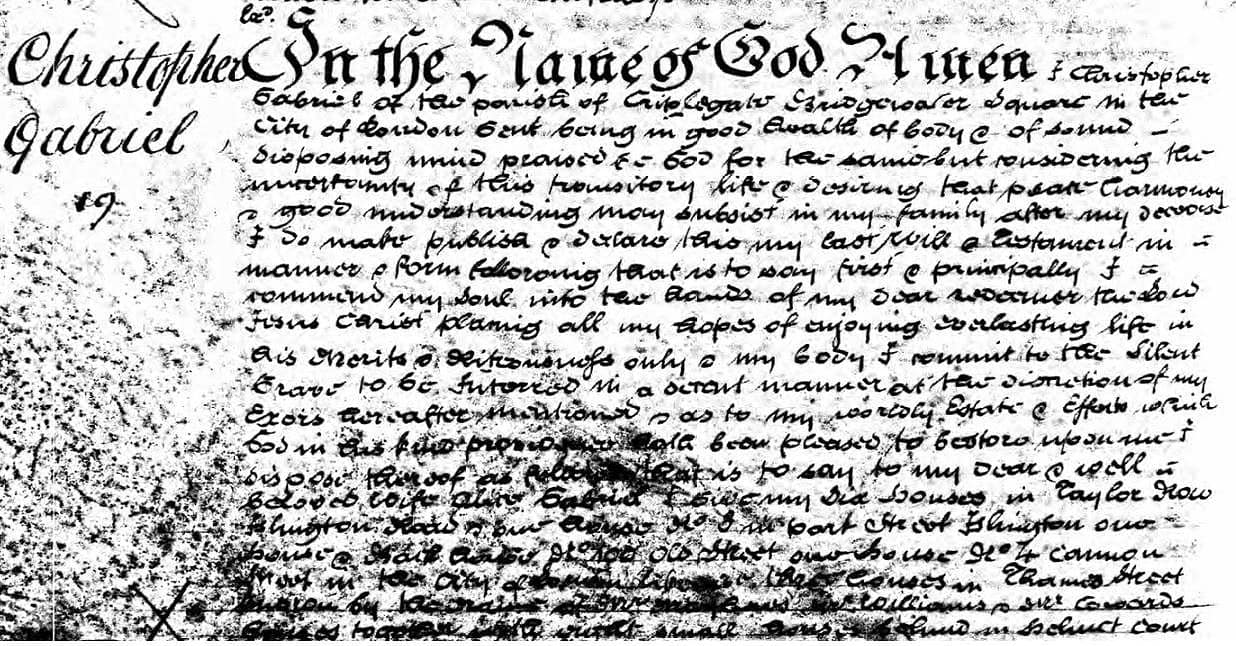 Christopher
Gabriel
19
In the Name of God Amen I Christopher
Gabriel of the parish of Criplegate Bridgewater Square in the
City of London Gent being in good health of body & of sound
disposing mind praised be God for the same but considering the
uncertainty of this transitory life & desiring that peace harmoney
& good understanding may subsist in my family after my decease
I do make publish & declare this my last Will & Testament in
manner & form following that is to say first & principally I
commend my Soul into the hands of my dear redeemer the Lord
Jesus Christ placing all my hopes of enjoying everlasting life in
his Merits & Riteousness only & my body I commit to the Silent
Grave to be Interred in a decent manner at the discretion of my
Exors hereafter mentioned & as to my worldly Estate & Effects which
God in his kind providence hath been pleased to bestow upon me I
dispose thereof as that is to say to my dear & well
beloved wife Alice Gabriel I Give my Six houses in Taylor Row
Islington Road & one house No in part Street Islington one
house & Old Street one house No 4 Cannon
Street in the City of London three houses in Thames Street
by the name of Williams & Mr Edwards
houses together with eight small houses behind in Court